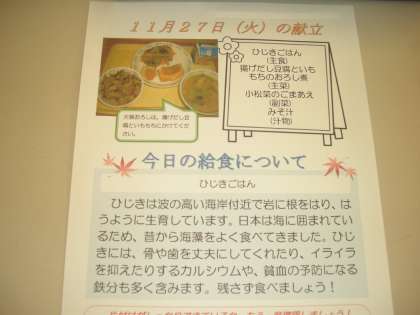 11月27日（火）の献立
ひじきごはん
（主食）
揚げだし豆腐といも
もちのおろし煮
（主菜）
小松菜のごまあえ
（副菜）
みそ汁
（汁物）
大根おろしは、揚げだし豆
腐といももちにかけてくだ
さい。
今日の給食について
ひじきごはん
ひじきは波の高い海岸付近で岩に根をはり、は
うように生育しています。日本は海に囲まれてい
るため、昔から海藻をよく食べてきました。ひじ
きには、骨や歯を丈夫にしてくれたり、イライラ
を抑えたりするカルシウムや、貧血の予防になる
鉄分も多く含みます。残さず食べましょう！